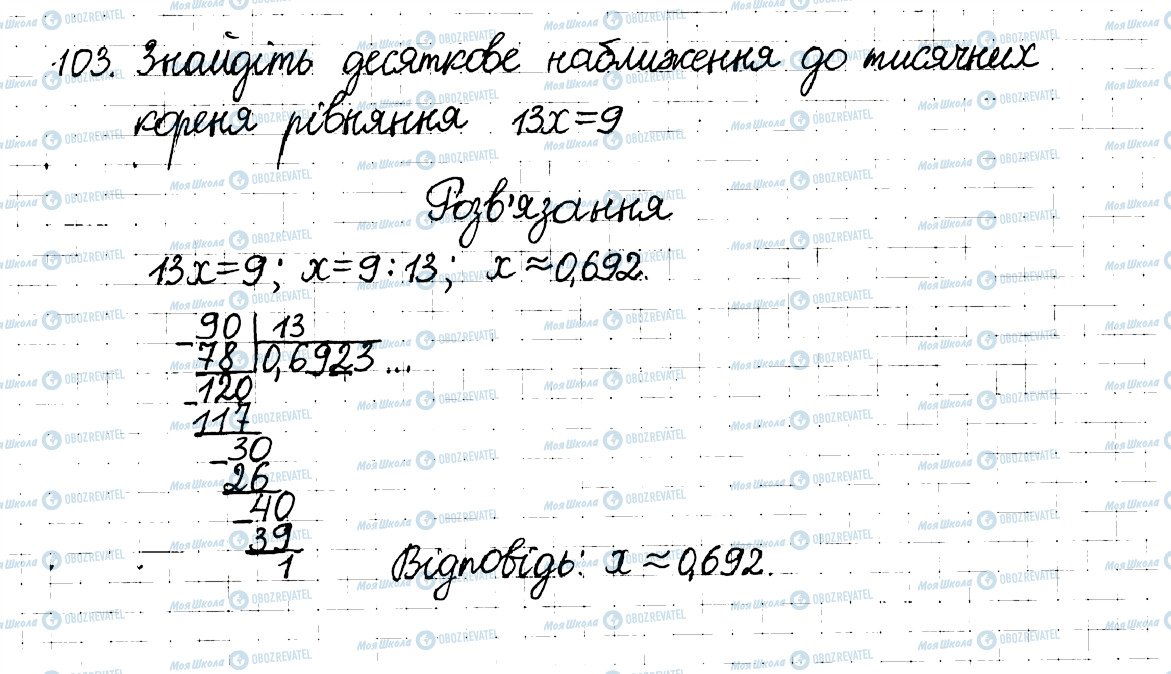 103. Знайдіть десяткове наближення до тисячних
кореня рівняння 13x=9
Розв'язання
13x=9; x=9:13; x≈0,692.
-90 | 13
78 | 0,6923...
-120
117
-30
26
-40
39
1
Відповідь: x≈0,692.
МояШкола OBOZREVATEL